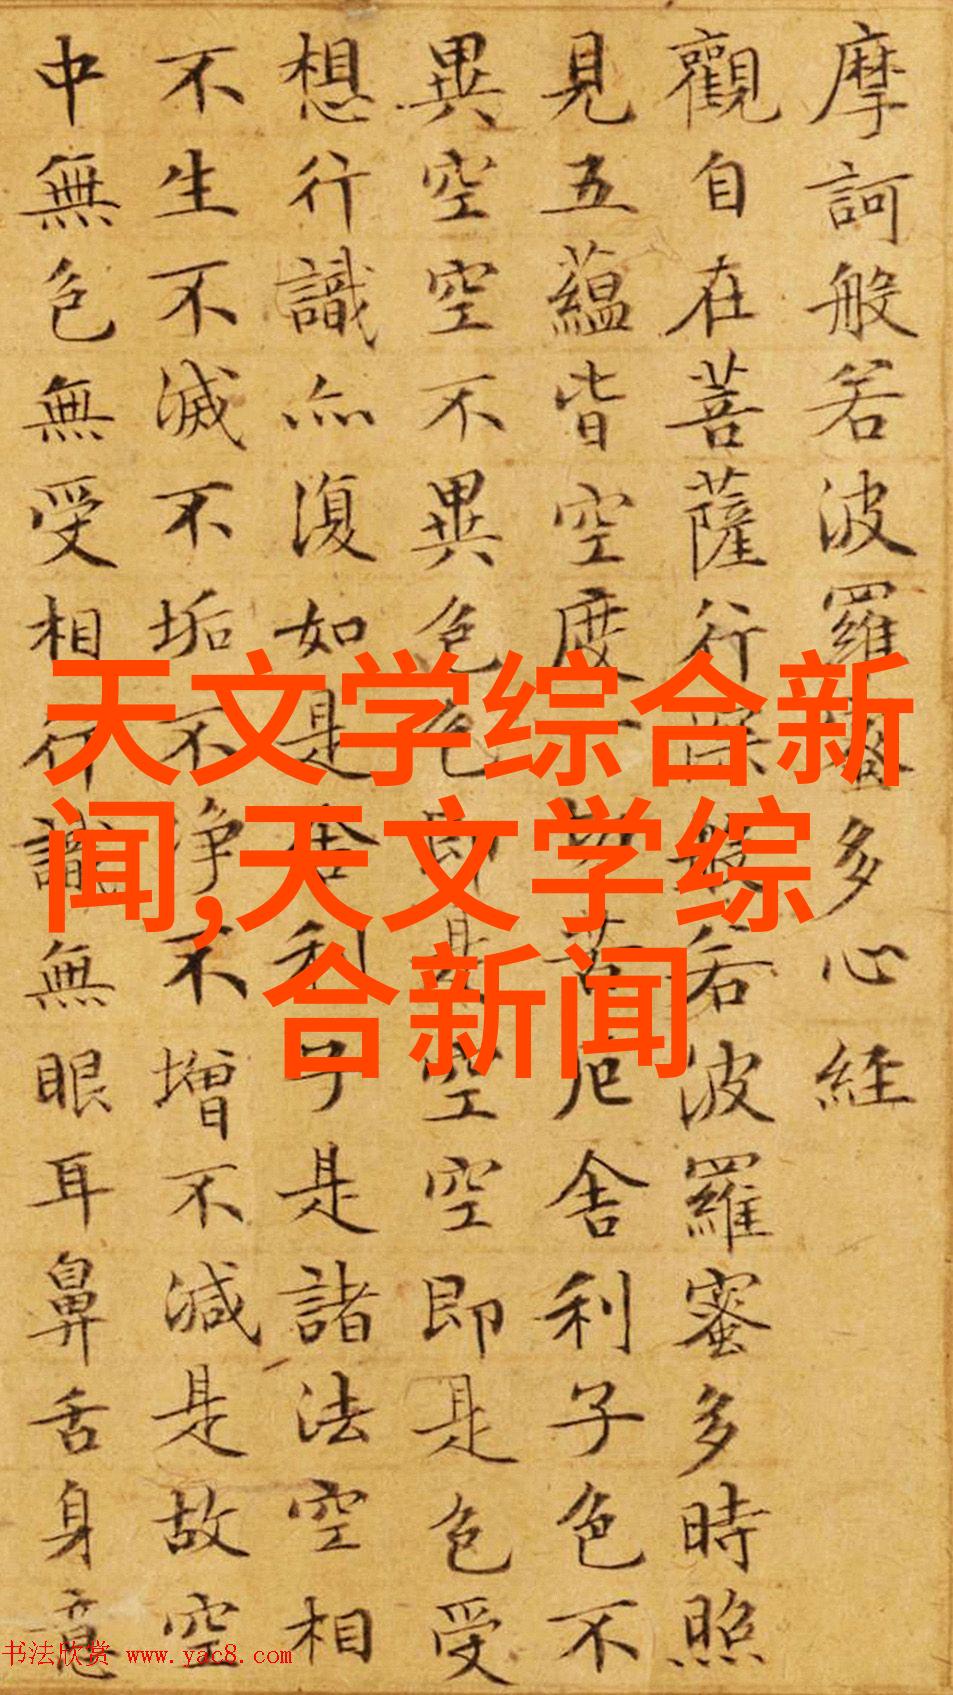 摩訶般若波羅蜜多心経
觀自在菩薩行深般若波羅蜜多時照
見五蘊皆空度一切苦厄舍利子色不
異空空不異色色即是空空即是色受
想行識亦復如是舍利子是諸法空相
不生不滅不垢不淨不增不減是故空
中無色無受相行識無眼耳鼻舌身意
天文学综合新
闻,天文学综
合新闻
书法欣赏 www.yac8.com